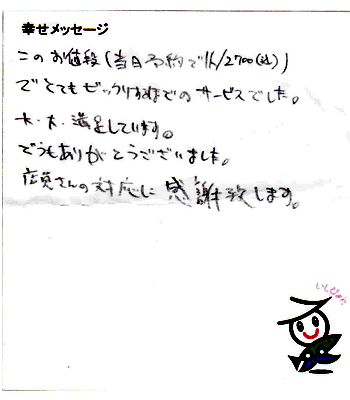 幸せメッセージ
このお値段(当日予約で1人/2700(込))
でとてもビックリするほどのサービスでした。
大・大・満足しています。
どうもありがとうございました。
店員さんの対応に感謝致します。